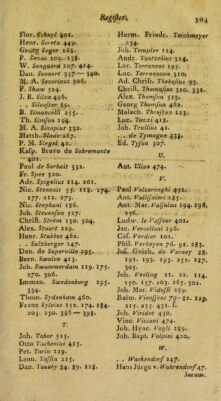 Register. 503
Flor. Schuyl 401.
Henr. Screta 449.
Georg Seger 261.
P. Senac 109. 138.
W. Senguerd 107. 414.
Dan. Sennert 337—340.
M. A. Severinus 306.
P. Shaw 524.
J. B. Silva 406.
. . Silvester 89.
B. Simoncelli 255.
Th. Simson 294.
M. A. Sinapius 332.
Matth. Slade 267.
P. M. Slegel 431.
Kasp. Bravo de Sobremonte 401.
Paul de Sorbait 332.
Fr. Spee 320.
Adr. Spigelius 114. 201.
Nic. Stenonis 59. 118. 174. 177. 212. 273.
Nic. Stephani 136.
Joh. Stevenson 527.
Christ. Ström 130. 504.
Alex. Stuart 129.
Henr. Stubbes 462.
. . Sulzberger 147.
Dan. de Superville 295.
Bern. Swalve 413.
Joh. Swammerdam 119. 175. 270. 306.
Imman. Swedenborg 295. 334.
Thom. Sydenham 460.
Franz Sylvius 152. 174. 184. 203. 250. 386 — 398.
T.
Joh. Tabor 525.
Otto Tachenius 415.
Pet. Tarin 129.
Leon. Tassin 215.
Dan. Tauvry 34. 89. 128.
Herm. Friedr. Teichmeyer 234.
Joh. Templer 114.
Andr. Tentzelius 314.
Lor. Terraneus 195.
Luc. Terranueus 310.
Ad. Christ. Thebesius 93.
Christ. Thomasius 320. 332.
Alex. Thomson 513.
Georg Thomson 462.
Malach. Thruston 123.
Luc. Tozzi 415.
Joh. Trullier 41.
. . de Tymogue 333.
Ed. Tyson 307.
U.
Ant. Ulloa 474.
V.
Paul Valcarenghi 491.
Ant. Vallisnieri 281.
Ant. Mar. Valsalva 194. 196. 256.
Ludw. le Vasseur 401.
Jac. Vercelloni 196.
Câs. Verdier 102.
Phil. Verheyen 76. 91. 283.
Jos. Guich. du Verney 88. 191. 193. 195. 252. 287. 305.
Joh. Vesling 21. 22. 114. 150. 157. 203. 265. 302.
Joh. Mar. Viduffi 289.
Raim. Vieussens 79—81. 129. 215. 255. 431. f.
Joh. Viridet 430.
Vinc. Viviani 474.
Joh. Hyac. Vogli 289.
Joh. Bapt. Volpini 420.
W.
. . Wachendorf 247.
Hans Jürge v. Wahrendorf 47.
Joram.